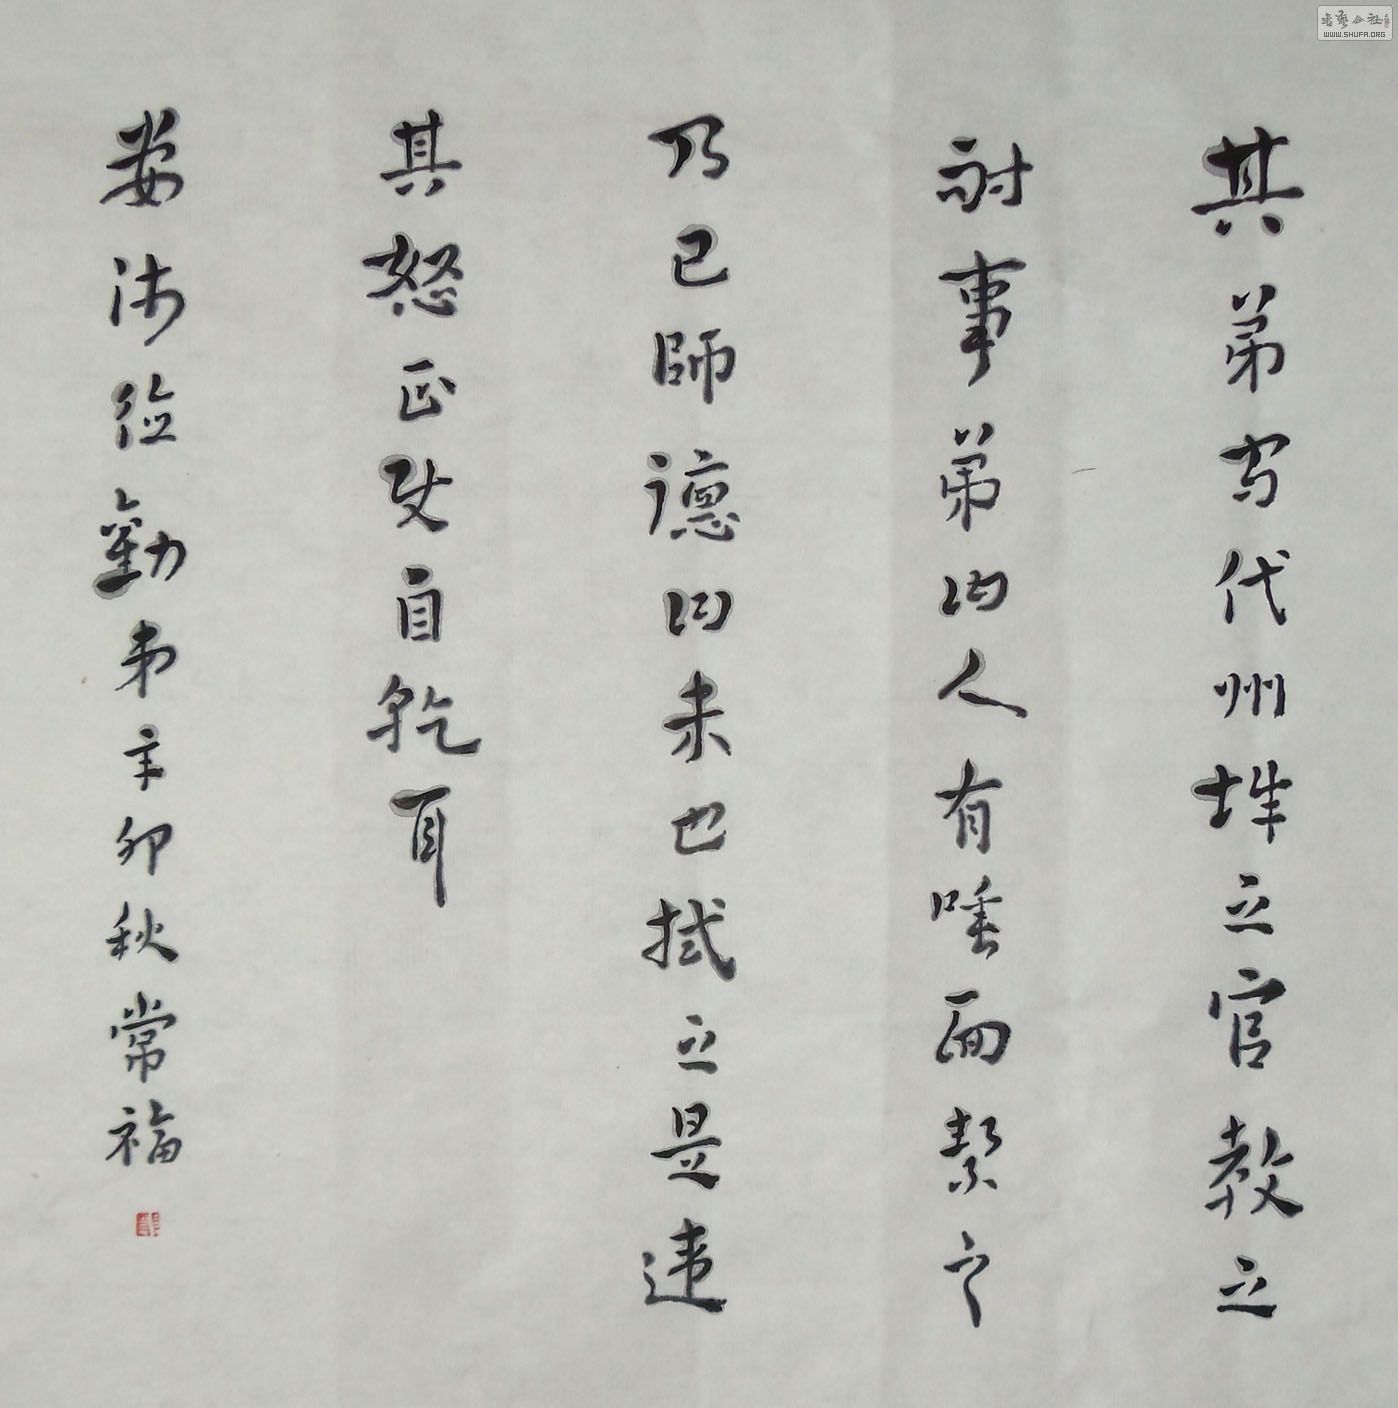 其弟守代州辭之官教之
耐事弟曰人有唾面絜之
乃已師德曰未也拭之是違
其怒正使自乾耳
婁师德勸弟辛卯秋常福
書藝公社
WWW.SHUFA.ORG